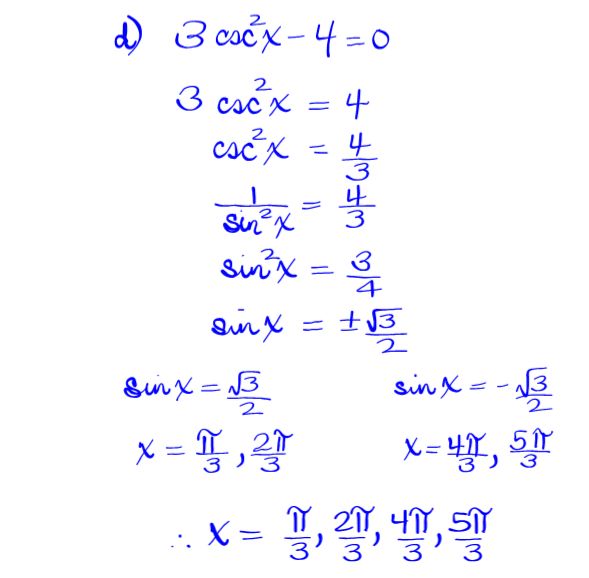 d) 3 csc²x - 4 = 0
3 csc²x = 4
csc²x = 4/3
1/sin²x = 4/3
sin²x = 3/4
sin x = ±√3/2
sin x = √3/2 sin x = -√3/2
x = π/3, 2π/3 x = 4π/3, 5π/3
∴ x = π/3, 2π/3, 4π/3, 5π/3